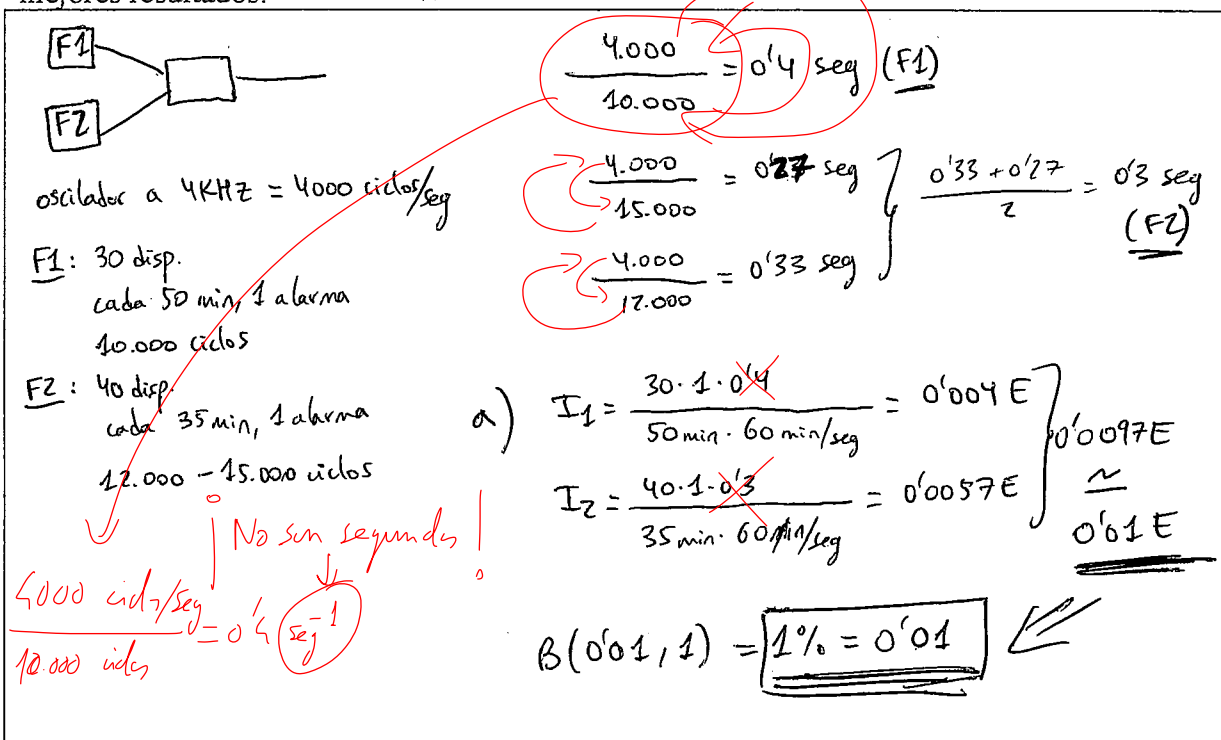 mejores resultados.
F1
F2
oscilador a 4KHz = 4000 ciclos/seg
F1: 30 disp.
cada 50 min, 1 alarma
10.000 ciclos
F2: 40 disp.
cada 35 min, 1 alarma
12.000 - 15.000 ciclos
4.000 / 10.000 = 0'4 seg (F1)
4.000 / 15.000 = 0'27 seg
4.000 / 12.000 = 0'33 seg
0'33 + 0'27 / 2 = 0'3 seg (F2)
a) I1 = 30·1·0'4 / 50min·60min/seg = 0'004 E
I2 = 40·1·0'3 / 35min·60min/seg = 0'0057E
0'0097E
≃
0'01 E
¡No son segundos!
4000 ciclos/seg / 10.000 ciclos = 0'4 seg⁻¹
B(0'01, 1) = 1% = 0'01